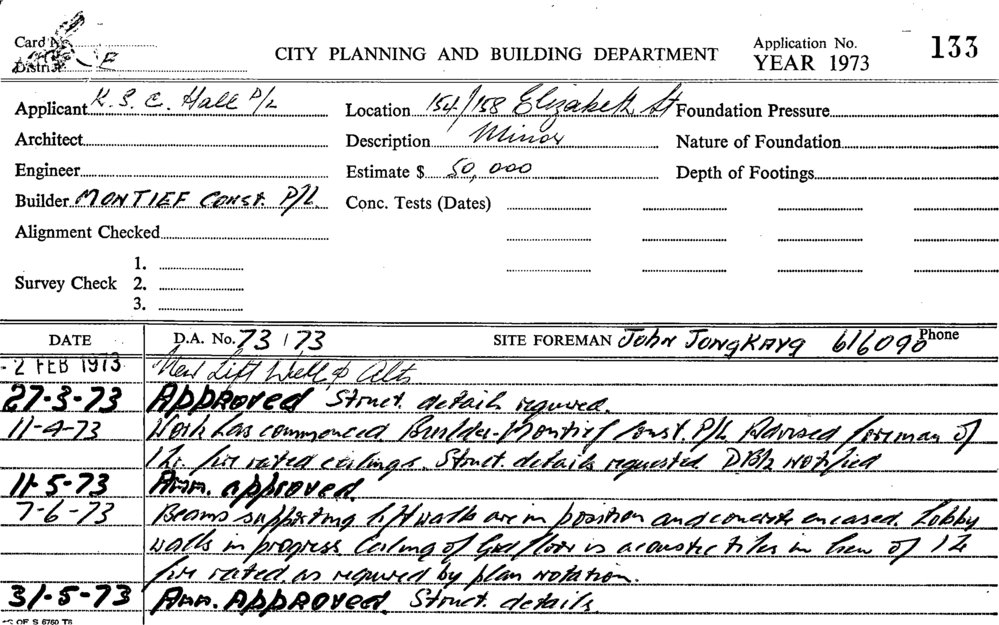 Card No.
District E
CITY PLANNING AND BUILDING DEPARTMENT
Application No. 133
YEAR 1973
Applicant K. S. C. Hall P/L
Location 154/158 Elizabeth St
Foundation Pressure
Architect
Description Minor
Nature of Foundation
Engineer
Estimate $ 50,000
Depth of Footings
Builder MONTIEF CONST. P/L.
Conc. Tests (Dates)
Alignment Checked
Survey Check 1.
2.
3.
DATE D.A. No. 73/73 SITE FOREMAN John Jongkayg 616090 Phone
- 2 FEB 1973 New Lift Well & Alts
27-3-73 Approved Struct. details required.
11-4-73 Work has commenced. Builder-Montief Const. P/L Advised foreman of
1 hr. fire rated ceilings. Struct. details requested DBL notified
11-5-73 Am. approved.
7-6-73 Beams supporting lift walls are in position and concrete encased. Lobby
walls in progress. Ceiling of Grd floor is acoustic tiles in lieu of 1 hr
fire rated as required by plan notation.
31-5-73 Am. Approved. Struct. details
OF S 6760 T6